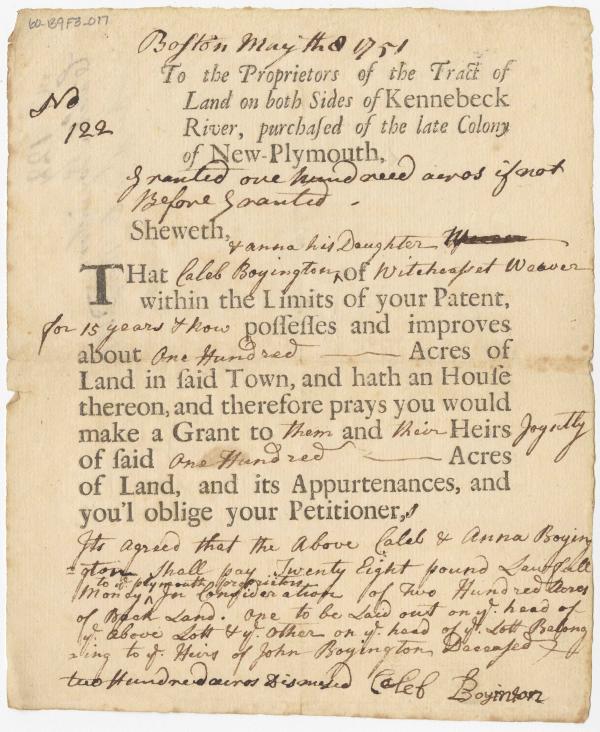 60-B9F3-017
Boston May th 8 1751
To the Proprietors of the Tract of
No
Land on both Sides of Kennebeck
122
River, purchaſed of the late Colony
of New-Plymouth,
Granted one hundreed acros if not
Before Granted -
Sheweth,
& anna his Daughter
THat Caleb Boyington ^ of Witcheaſset Weaver
within the Limits of your Patent,
for 15 years & now poſſeſſes and improves
about One Hundred — Acres of
Land in ſaid Town, and hath an Houſe
thereon, and therefore prays you would
make a Grant to them and their Heirs Joyntly
of ſaid One Hundred — Acres
of Land, and its Appurtenances, and
you'l oblige your Petitioner,s
Its agreed that the Above Caleb & Anna Boyin
=gton Shall pay Twenty Eight pound Lawfull
to ye plymouth proprietors
Money ^ In Consideration of Two Hundred Acres
of Back Land. One to be Laid out on ye. head of
ye. Above Lott & ye. Other on ye. head of ye. Lott Belong
=ing to ye. Heirs of John Boyington Deceased
two Hundred acros Dismised Caleb Boyinton